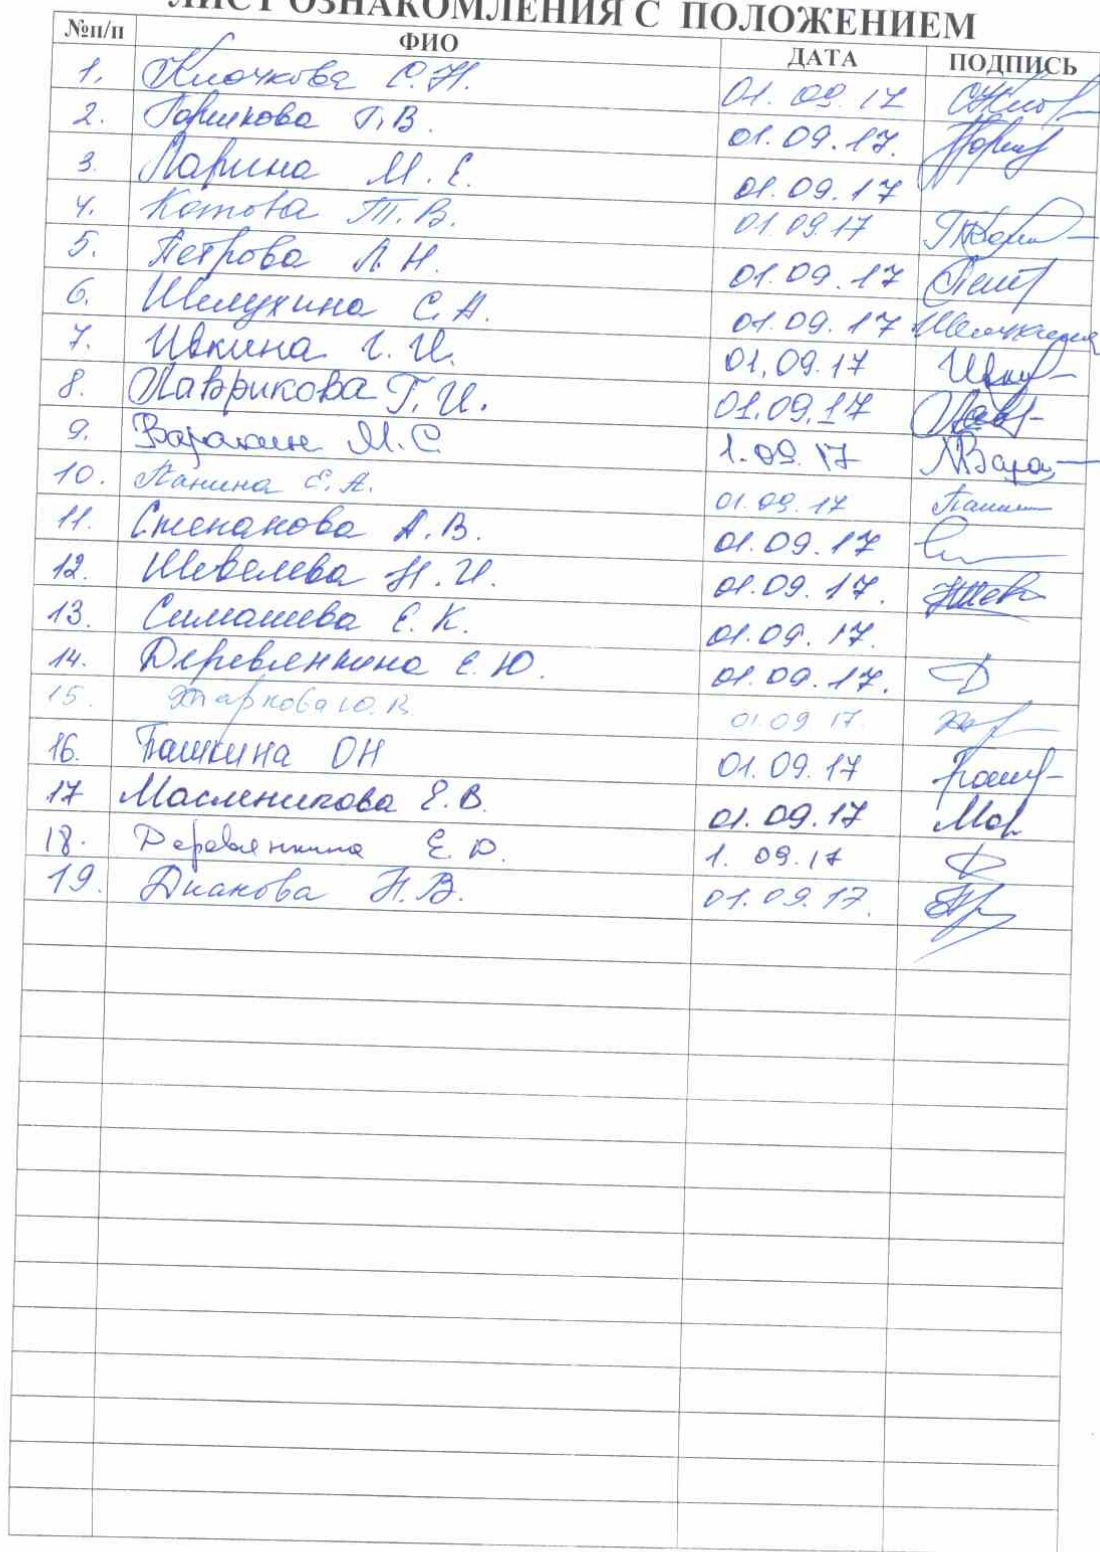 ЛИСТ ОЗНАКОМЛЕНИЯ С ПОЛОЖЕНИЕМ
№п/п ФИО ДАТА ПОДПИСЬ
1. Клочкова С.Н. 01.09.17
2. Горшкова Г.В. 01.09.17.
3. Ларина М.Е. 01.09.17
4. Котова Т.В. 01.09.17
5. Петрова Л.Н. 01.09.17
6. Шелухина С.А. 01.09.17
7. Ивкина Г.И. 01.09.17
8. Лаврикова Г.И. 01.09.17
9. М.С 1.09.17
10. Панина Е.А. 01.09.17
11. Степанова А.В. 01.09.17
12. Шевелева Н.И. 01.09.17.
13. Симашева Е.К. 01.09.17.
14. Деревянкина Е.Ю. 01.09.17.
15. Ю.В. 01.09.17.
16. Башкина ОН 01.09.17
17 Масленикова Е.В. 01.09.17 Мас
18. Деревянкина Е.Ю. 1.09.17
19. Дианова Н.В. 01.09.17.